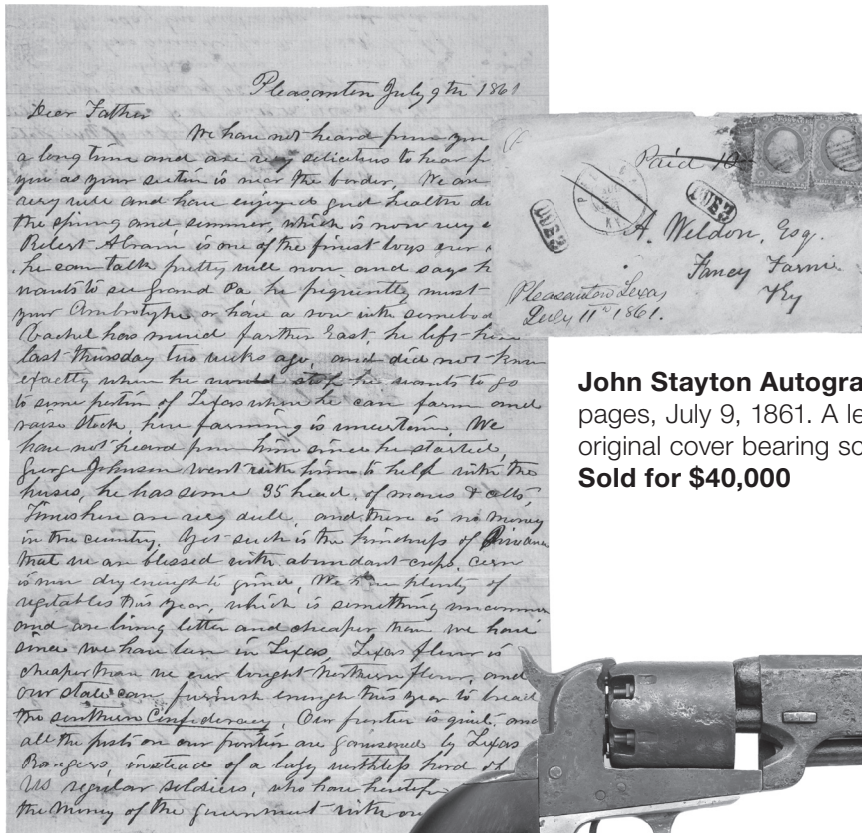 Pleasanton July 9th 1861
Dear Father
We have not heard from you
a long time and are very solicitus to hear
you as your section is near the border. We are
very well and have enjoyed good health
the spring and summer, which is now very
Robert Abram is one of the finest boys ever
he can talk pretty well now and says he
wants to see Grand Pa he frequently must
your Ambrotype or have a row with
Rachel has moved farther East, he left here
last Thursday two weeks ago, and did not know
exactly where he would stop he wants to go
to some portion of Texas where he can farm and
raise stock, here farming is uncertain. We
have not heard from him since he started,
George Johnson went with him to help with the
horses, he has some 35 head, of mares & colts,
Times here are very dull, and there is no money
in the country. Yet such is the kindness of
that we are blessed with abundant crops, corn
is now dry enough to grind, We have plenty of
vegetables this year, which is something uncommon
and are living better and cheaper than we have
since we have been in Texas, Texas flour is
cheaper than we ever bought Northern flour, and
our state can furnish enough this year to bread
the southern Confederacy. Our frontier is quiet, and
all the posts on our frontier are garrisoned by Texas
Rangers, insteade of a lazy worthless hord of
US regular soldiers, who have
the money of the government with
Paid 10
DUE 3
DUE 3
KY
A. Weldon, Esq.
Fancy Farm
Ky
Pleasanton Texas
July 11th 1861.
John Stayton Autogra
pages, July 9, 1861. A le
original cover bearing sc
Sold for $40,000